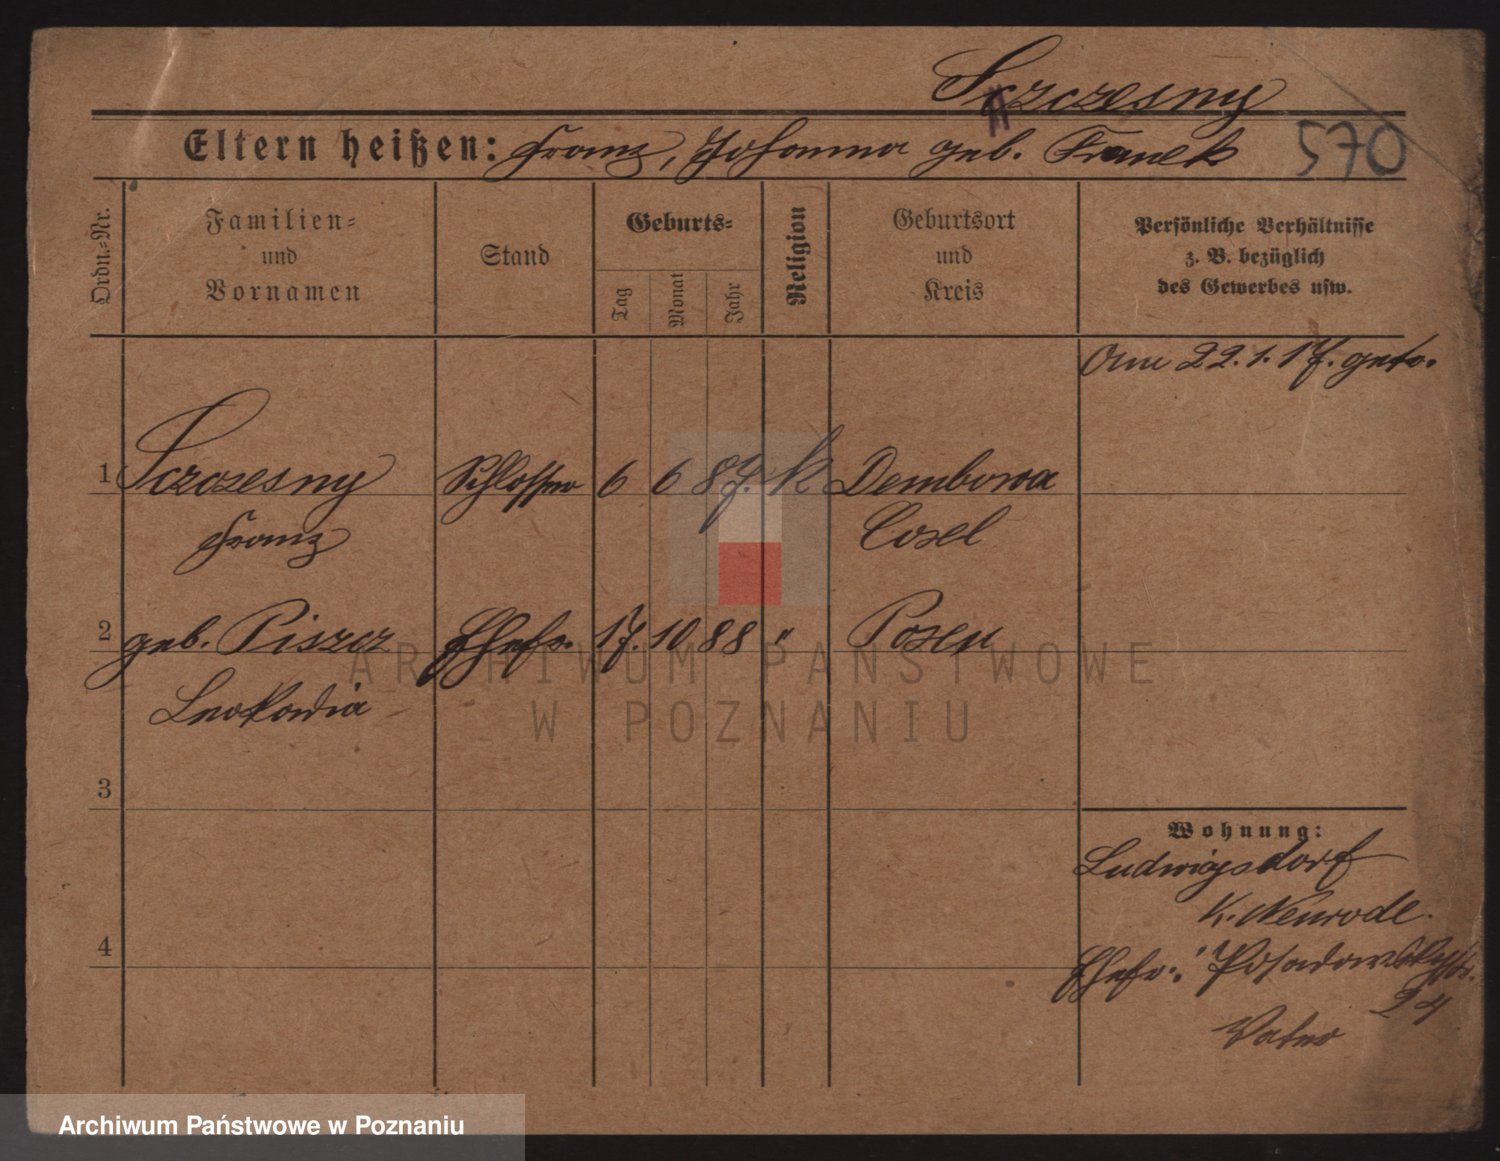 Szczesny
Eltern heißen: Franz, Johanna geb. Franek 570
Ordn.=Nr.
Familien=
und
Vornamen
Stand
Geburts=
Tag
Monat
Jahr
Religion
Geburtsort
und
Kreis
Persönliche Verhältnisse
z. B. bezüglich
des Gewerbes usw.
Am 22.1.17. getr.
1 Sczczesny Schlosser 6 6 87. k Dembowa
Franz Cosel
2 geb. Piszcz Ehefr. 17. 10. 88 " Posen
Leokadia
3
4
Wohnung:
Ludwigsdorf
K. Neurode.
Ehefr.: Posadowskystr.
24
Vater
ARCHIWUM PAŃSTWOWE
W POZNANIU
Archiwum Państwowe w Poznaniu